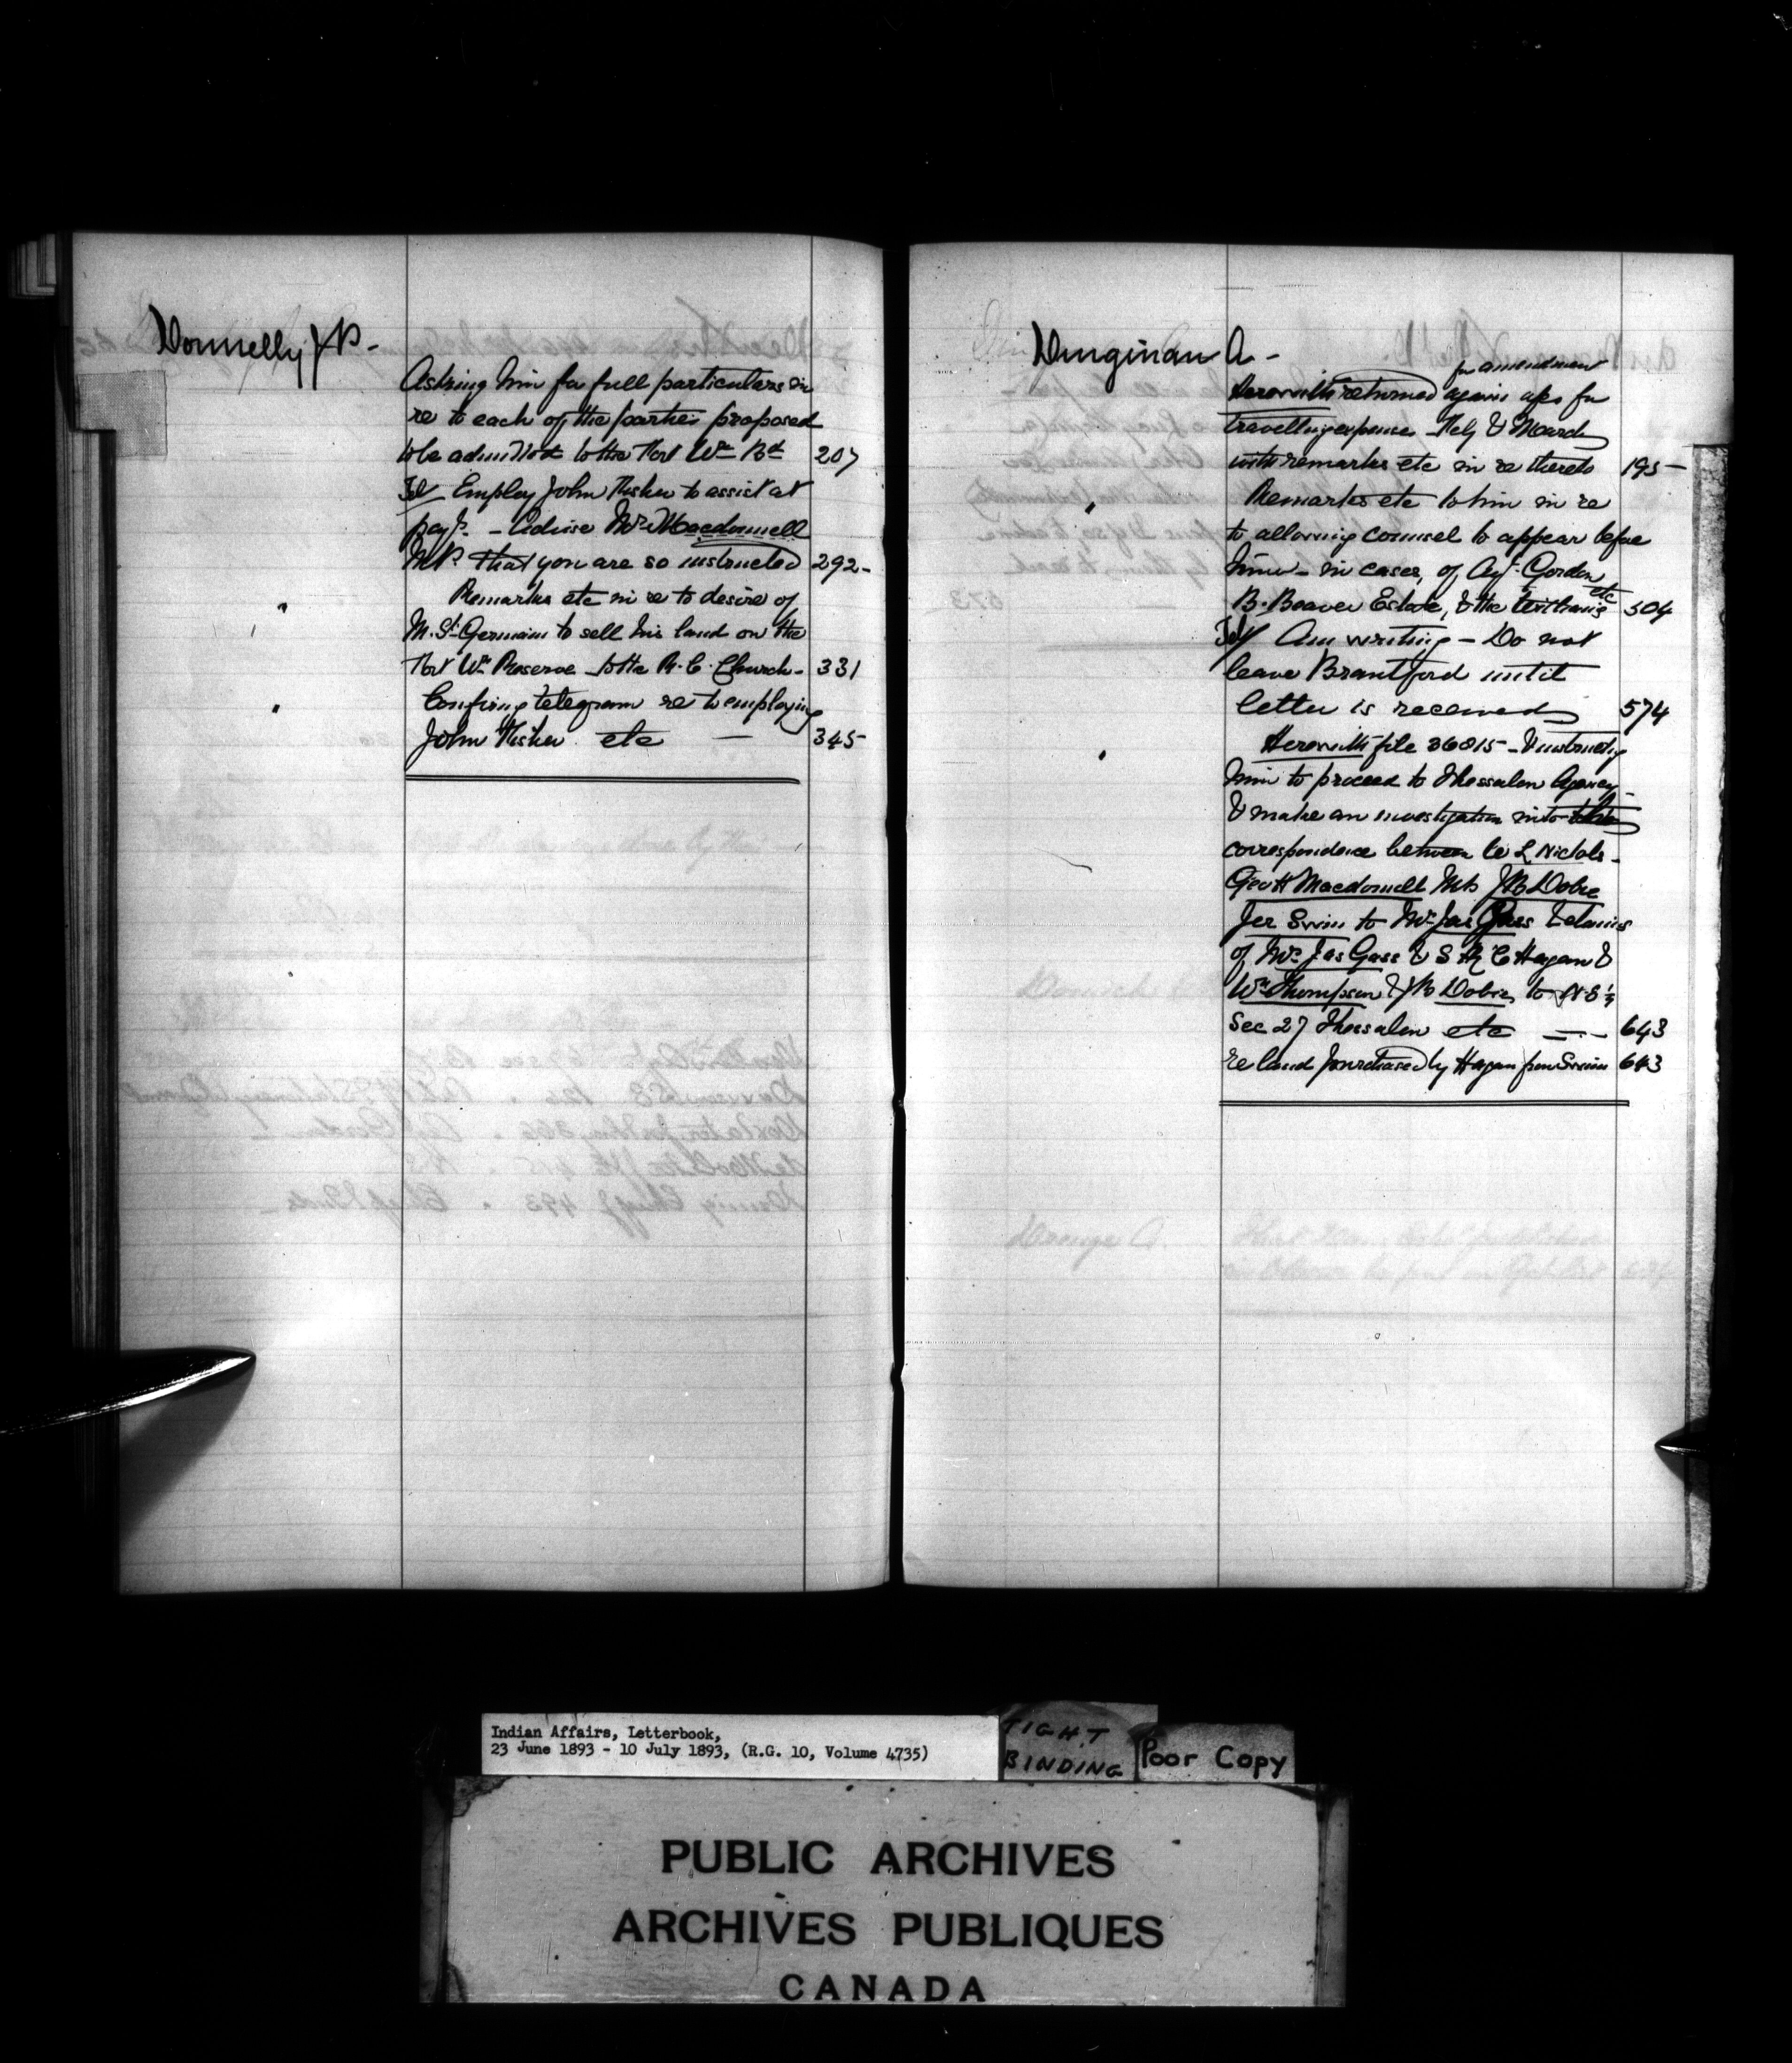 Donnelly J P -
Asking him for full particulars in
re to each of the parties proposed
to be admitted to the Fort Wm Bd 207
Tel Employ John Fisher to assist at
payt. - Advise Mr Macdonnell
M.P. that you are so instructed 292-
" Remarks etc in re to desire of
M. St. Germain to sell his land on the
Fort Wm Reserve to the R.C. Church - 331
" Confiring telegram re to employing
John Fisher etc — 345
Dingman A -
for amendment
Herewith returned again apc for
travelling expenses Feby & March
with remarks etc in re thereto 195-
" Remarks etc to him in re
to allowing counsel to appear before
him - in cases, of Agt. Gordon
B. Beaver Estate, & the etc 504
Tel Am writing - Do not
leave Brantford until
letter is received 574
" Herewith file 36815 - & instructing
him to proceed to Thessalon Agency -
& make an investigation into
correspondence between L Nichols -
Geo H Macdonnell MP J B Dobie
Jer Swin to Mr Jas Gass & claims
of Mr Jas Gass & S Hagan &
Wm Thompson & J B Dobie to N.E ¼
Sec 27 Thessalon etc — 643
re land purchased by Hagan from Swin 643
Indian Affairs, Letterbook,
23 June 1893 - 10 July 1893, (R.G. 10, Volume 4735)
TIGHT
BINDING
Poor Copy
PUBLIC ARCHIVES
ARCHIVES PUBLIQUES
CANADA